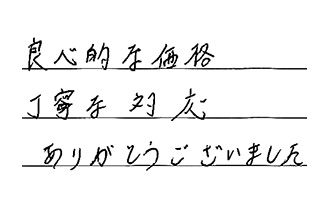 良心的な価格
丁寧な対応
ありがとうございました